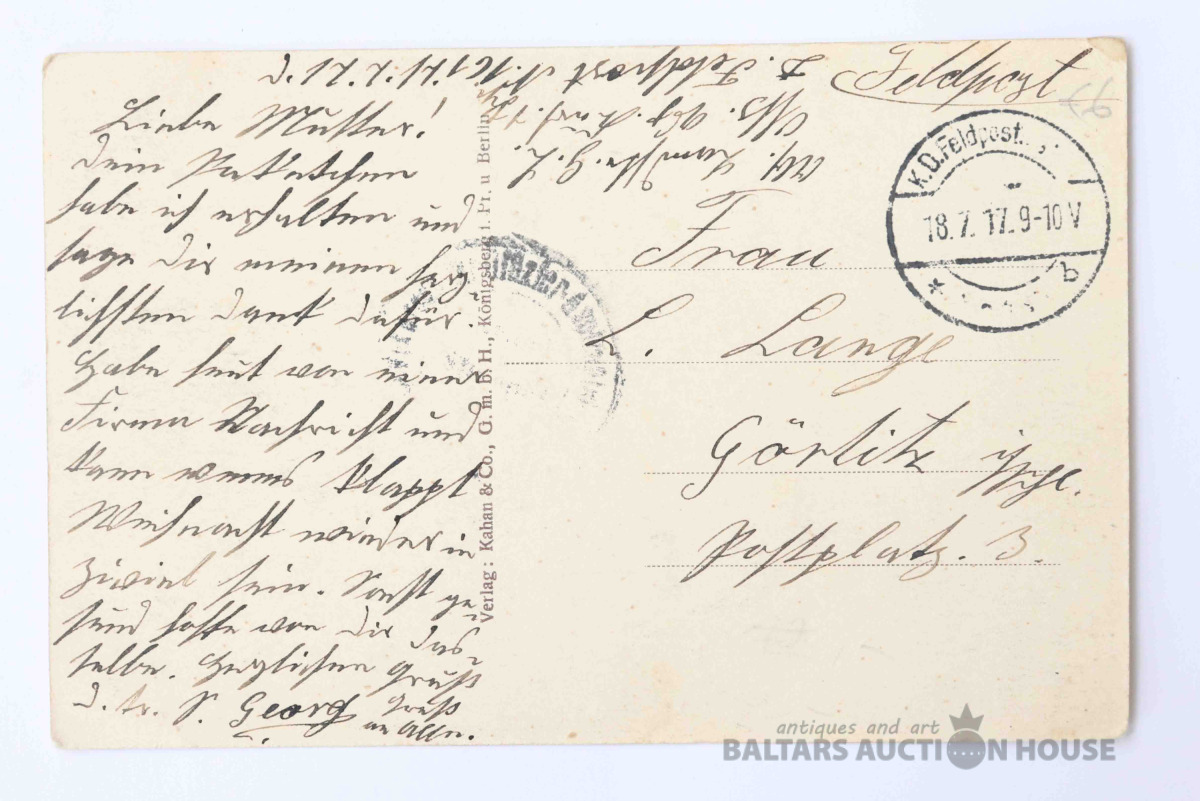 Feldpost
D. Feldpost
Liebe Mutter!
Dein Paketchen
habe ich erhalten und
sage Dir meinen herz-
lichsten Dank dafür.
Habe heut von einer
Firma Nachricht und
kann wenns klappt
Weihnacht wieder in
Zivil sein. Sonst ge-
sund hoffe von Dir das-
selbe. Herzlichen Gruß
D. tr. S. Georg Gruß
an Alle.
Verlag: Kahan & Co., G. m. b. H., Königsberg i. Pr. u Berlin
K.D.Feldpost
18.7.17.9-10V
* b
Frau
L. Lange
Görlitz
Postplatz. 3.
antiques and art
BALTARS AUCTION HOUSE